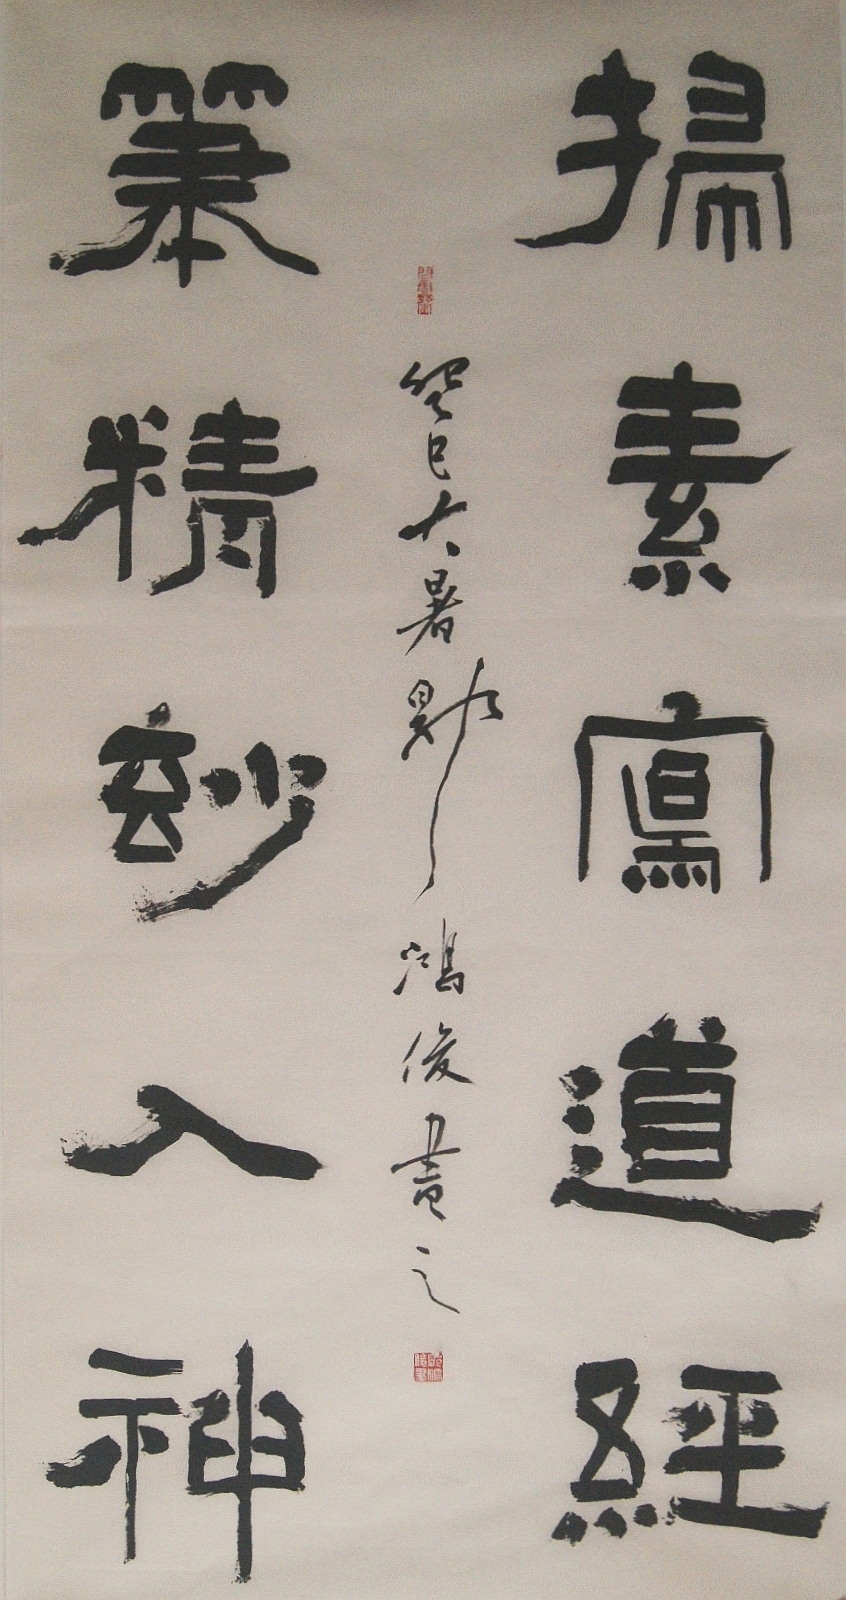 掃素寫道經
筆精玅入神
癸巳大暑鴻俊書之